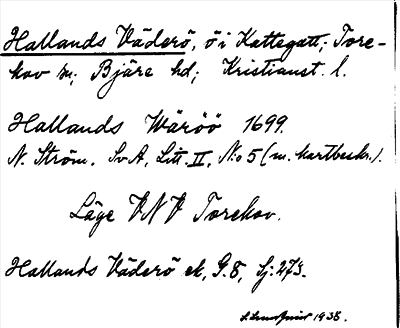 Hallands Väderö, ö i Kattegatt; Tore-
kov sn; Bjäre hd; Kristianst. l.
Hallands Wäröö 1699.
N. Ström. Sv A, Litt. II, No 5 (m. kartbeskr.).
Läge VNV Torekov.
Hallands Väderö ek, G. 8, Sj: 273.
1938.